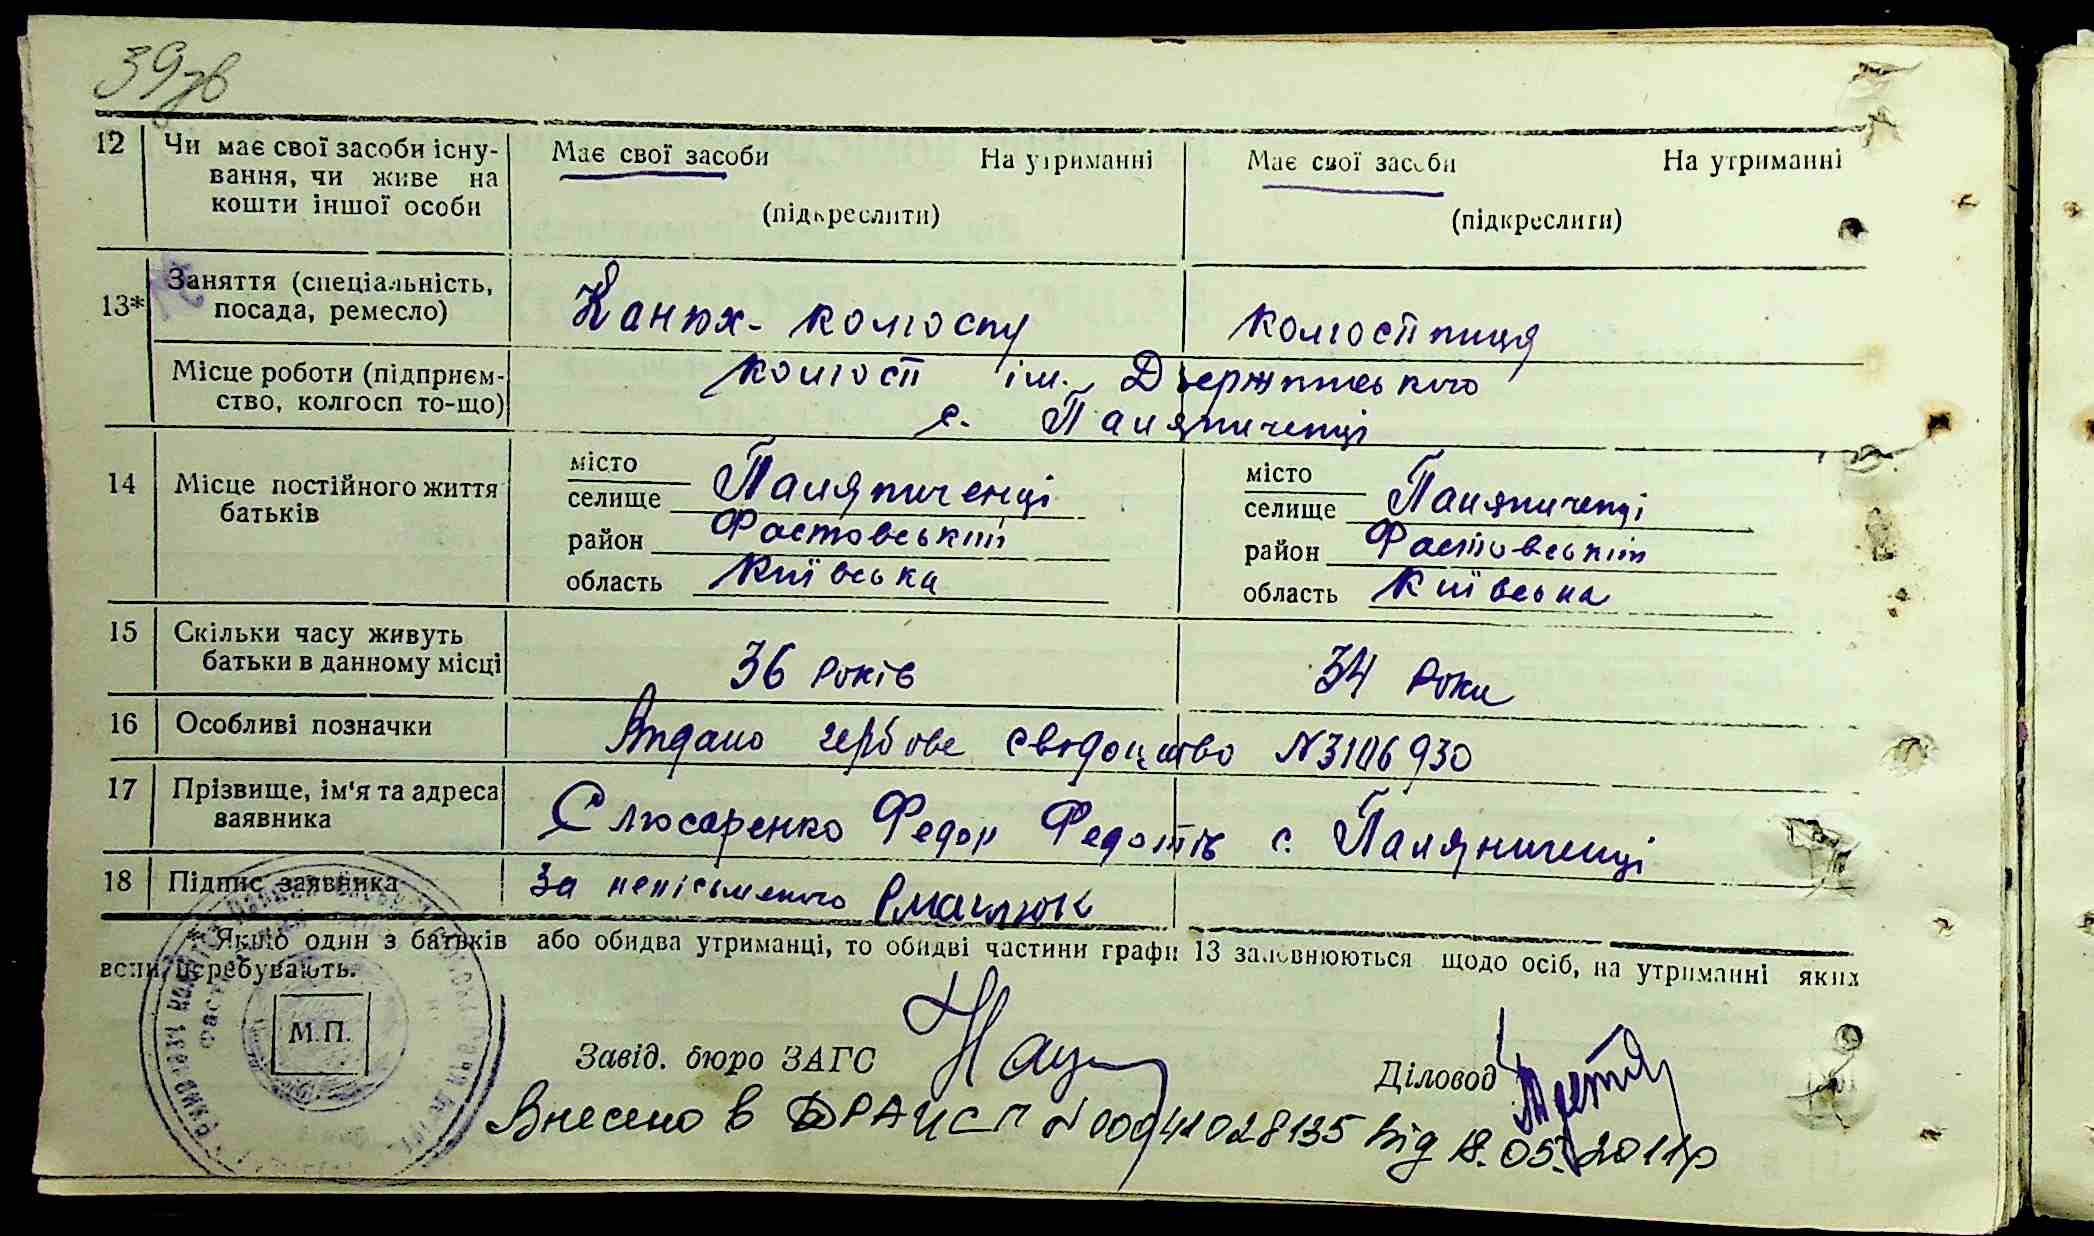 39зв
12 Чи має свої засоби існу- Має свої засоби На утриманні Має свої засоби На утриманні
вання, чи живе на
кошти іншої особи (підкреслити) (підкреслити)
13* Заняття (спеціальність,
посада, ремесло) Канюх- колгоспу колгоспниця
Місце роботи (підприєм- колгосп ім. Дзержинського
ство, колгосп то-що) с. Паляниченці
14 Місце постійного життя
батьків
місто
селище Паляниченці
район Фастовський
область Київська
місто
селище Паляниченці
район Фастовський
область Київська
15 Скільки часу живуть
батьки в данному місці 36 років 34 роки
16 Особливі позначки Видано гербове свидоцтво N3106930
17 Прізвище, ім'я та адреса
заявника Слюсаренко Федор Федотів с. Паляниченці
18 Підпис заявника За неписьменого
* Якщо один з батьків або обидва утриманці, то обидві частини графи 13 заповнюються щодо осіб, на утриманні яких
вони перебувають.
М.П.
Завід. бюро ЗАГС
Діловод
Внесено в ДРАЦСГ N00941028135 від 18.05.2011р